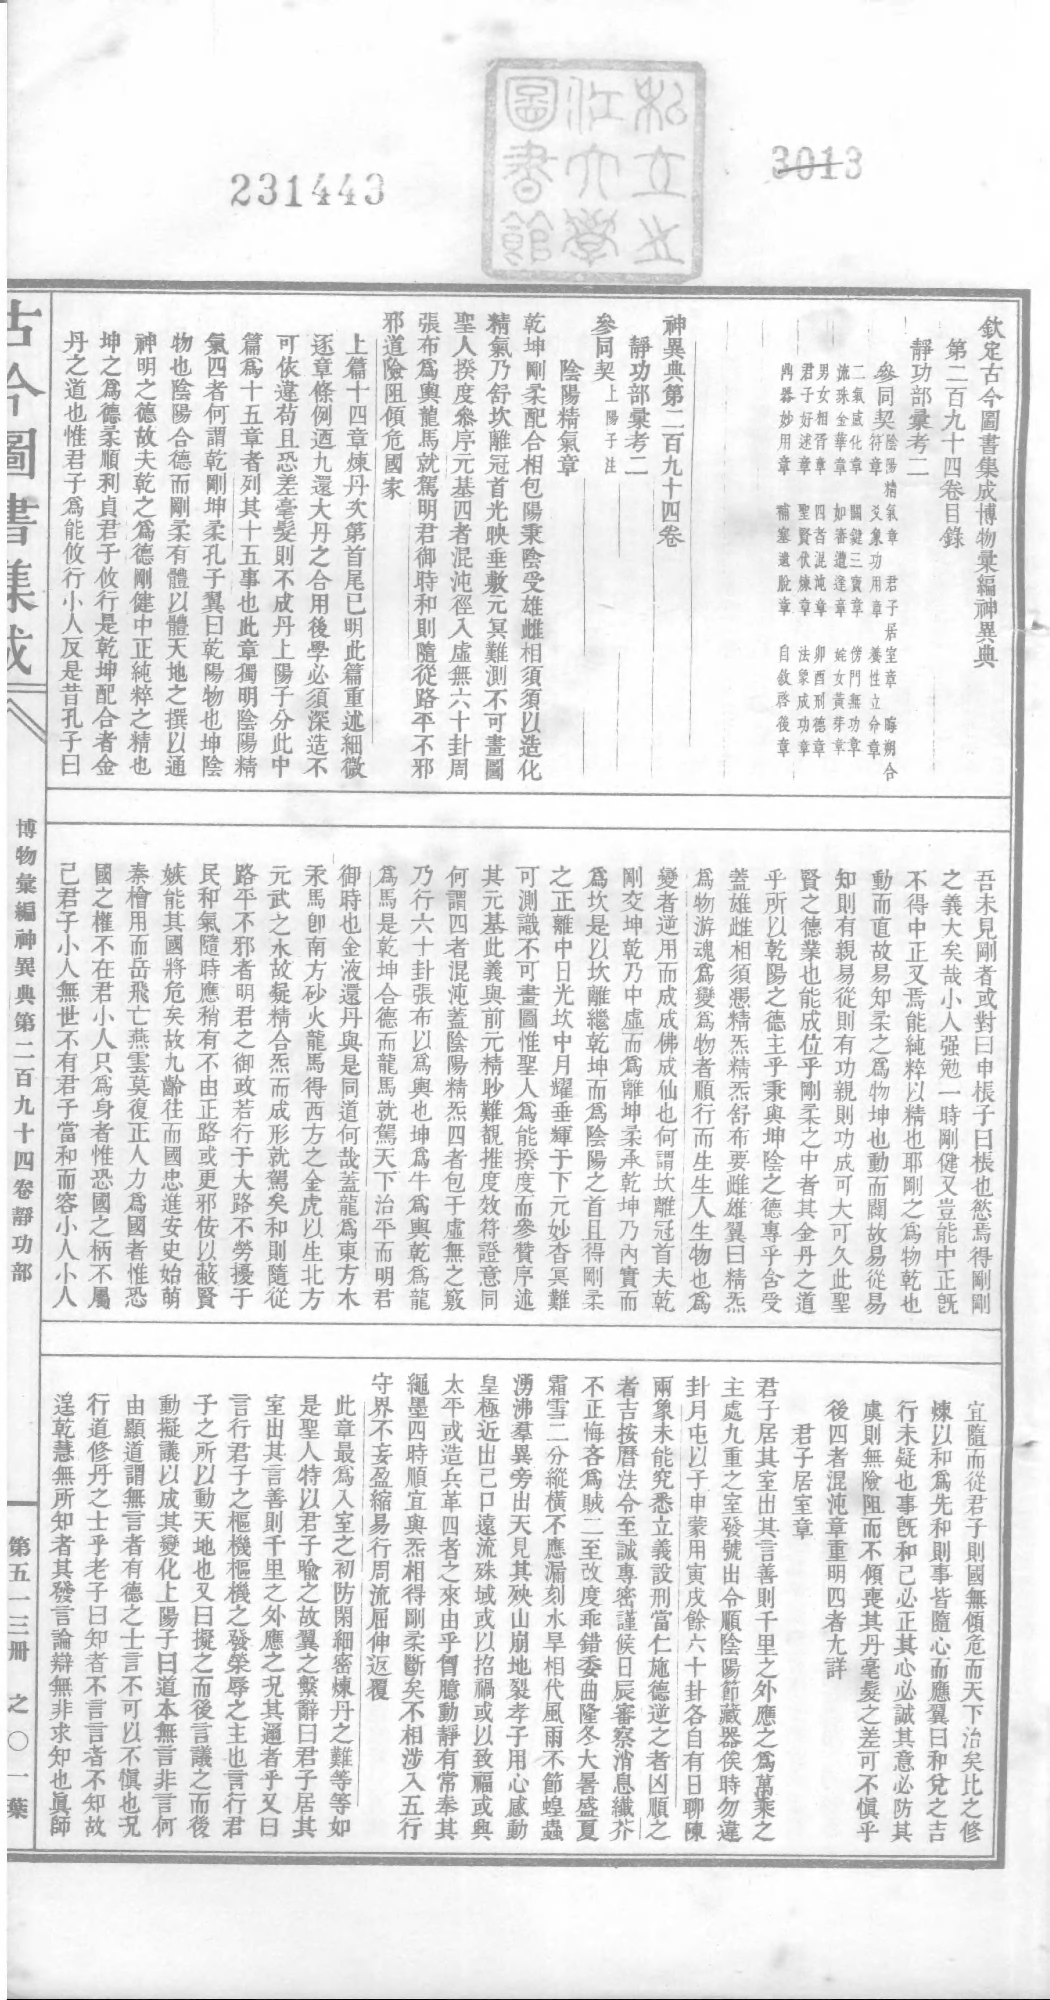 231443
3013
私立之江大學圖書館
欽定古今圖書集成博物彙編神異典
第二百九十四卷目錄
靜功部彙考二
參同契陰陽精氣章 君子居室章 晦朔合
符章 爻象功用章 養性立命章
二氣感化章 關鍵三寶章 傍門無功章
流珠金華章 如審遭逢章 姹女黃芽章
男女相胥章 四者混沌章 卯酉刑德章
君子好逑章 聖賢伏煉章 法象成功章
鼎器妙用章 補塞遺脫章 自敘啓後章
神異典第二百九十四卷
靜功部彙考二
參同契上陽子注
陰陽精氣章
乾坤剛柔配合相包陽秉陰受雄雌相須須以造化
精氣乃舒坎離冠首光映垂敷元冥難測不可畫圖
聖人揆度參序元基四者混沌徑入虛無六十卦周
張布爲輿龍馬就駕明君御時和則隨從路平不邪
邪道險阻傾危國家
上篇十四章煉丹次第首尾已明此篇重述細微
逐章條例迺九還大丹之合用後學必須深造不
可依違苟且恐差毫髮則不成丹上陽子分此中
篇爲十五章者列其十五事也此章獨明陰陽精
氣四者何謂乾剛坤柔孔子翼曰乾陽物也坤陰
物也陰陽合德而剛柔有體以體天地之撰以通
神明之德故夫乾之爲德剛健中正純粹之精也
坤之爲德柔順利貞君子攸行是乾坤配合者金
丹之道也惟君子爲能攸行小人反是昔孔子曰
吾未見剛者或對曰申棖子曰棖也慾焉得剛剛
之義大矣哉小人强勉一時剛健又豈能中正旣
不得中正又焉能純粹以精也耶剛之爲物乾也
動而直故易知柔之爲物坤也動而闢故易從易
知則有親易從則有功親則功成可大可久此聖
賢之德業也能成位乎剛柔之中者其金丹之道
乎所以乾陽之德主乎秉與坤陰之德專乎含受
蓋雄雌相須慂精炁精炁舒布要雌雄翼曰精炁
爲物游魂爲變爲物者順行而生生人生物也爲
變者逆用而成成佛成仙也何謂坎離冠首夫乾
剛交坤乾乃中虛而爲離坤柔承乾坤乃內實而
爲坎是以坎離繼乾坤而爲陰陽之首且得剛柔
之正離中日光坎中月耀垂輝于下元妙杳冥難
可測識不可畫圖惟聖人爲能揆度而參贊序述
其元基此義與前元精眇難覩推度效符證意同
何謂四者混沌蓋陰陽精炁四者包于虛無之竅
乃行六十卦張布以爲輿也坤爲牛爲輿乾爲龍
爲馬是乾坤合德而龍馬就駕天下治平而明君
御時也金液還丹與是同道何哉蓋龍爲東方木
汞馬卽南方砂火龍馬得西方之金虎以生北方
元武之水故凝精合炁而成形就駕矣和則隨從
路平不邪者明君之御政若行于大路不勞擾于
民和氣隨時應稍有不由正路或更邪佞以蔽賢
嫉能其國將危矣故九齡往而國忠進安史始萌
秦檜用而岳飛亡燕雲莫復正人力爲國者惟恐
國之權不在君小人只爲身者惟恐國之柄不屬
己君子小人無世不有君子當和而容小人小人
宜隨而從君子則國無傾危而天下治矣比之修
煉以和爲先和則事皆隨心而應翼曰和兌之吉
行未疑也事旣和己必正其心必誠其意必防其
虞則無險阻而不傾喪其丹毫髮之差可不愼乎
後四者混沌章重明四者尤詳
君子居室章
君子居其室出其言善則千里之外應之爲萬乘之
主處九重之室發號出令順陰陽節藏器俟時勿違
卦月屯以子申蒙用寅戌餘六十卦各自有日聊陳
兩象未能究悉立義設刑當仁施德逆之者凶順之
者吉按曆法令至誠專密謹候日辰審察消息纖芥
不正悔吝爲賊二至改度乖錯委曲隆冬大暑盛夏
霜雪二分縱橫不應漏刻水旱相代風雨不節蝗蟲
湧沸羣異旁出天見其殃山崩地裂孝子用心感動
皇極近出己口遠流殊域或以招禍或以致福或興
太平或造兵革四者之來由乎胷臆動靜有常奉其
繩墨四時順宜與炁相得剛柔斷矣不相涉入五行
守界不妄盈縮易行周流屈伸返覆
此章最爲入室之初防閑細密煉丹之難等等如
是聖人特以君子喻之故翼之繫辭曰君子居其
室出其言善則千里之外應之況其邇者乎又曰
言行君子之樞機樞機之發榮辱之主也言行君
子之所以動天地也又曰擬之而後言議之而後
動擬議以成其變化上陽子曰道本無言非言何
由顯道謂無言者有德之士言不可以不愼也況
行道修丹之士乎老子曰知者不言言者不知故
逞乾慧無所知者其發言論辯無非求知也眞師
古今圖書集成
博物彙編神異典第二百九十四卷靜功部
第五一三冊 之〇一葉